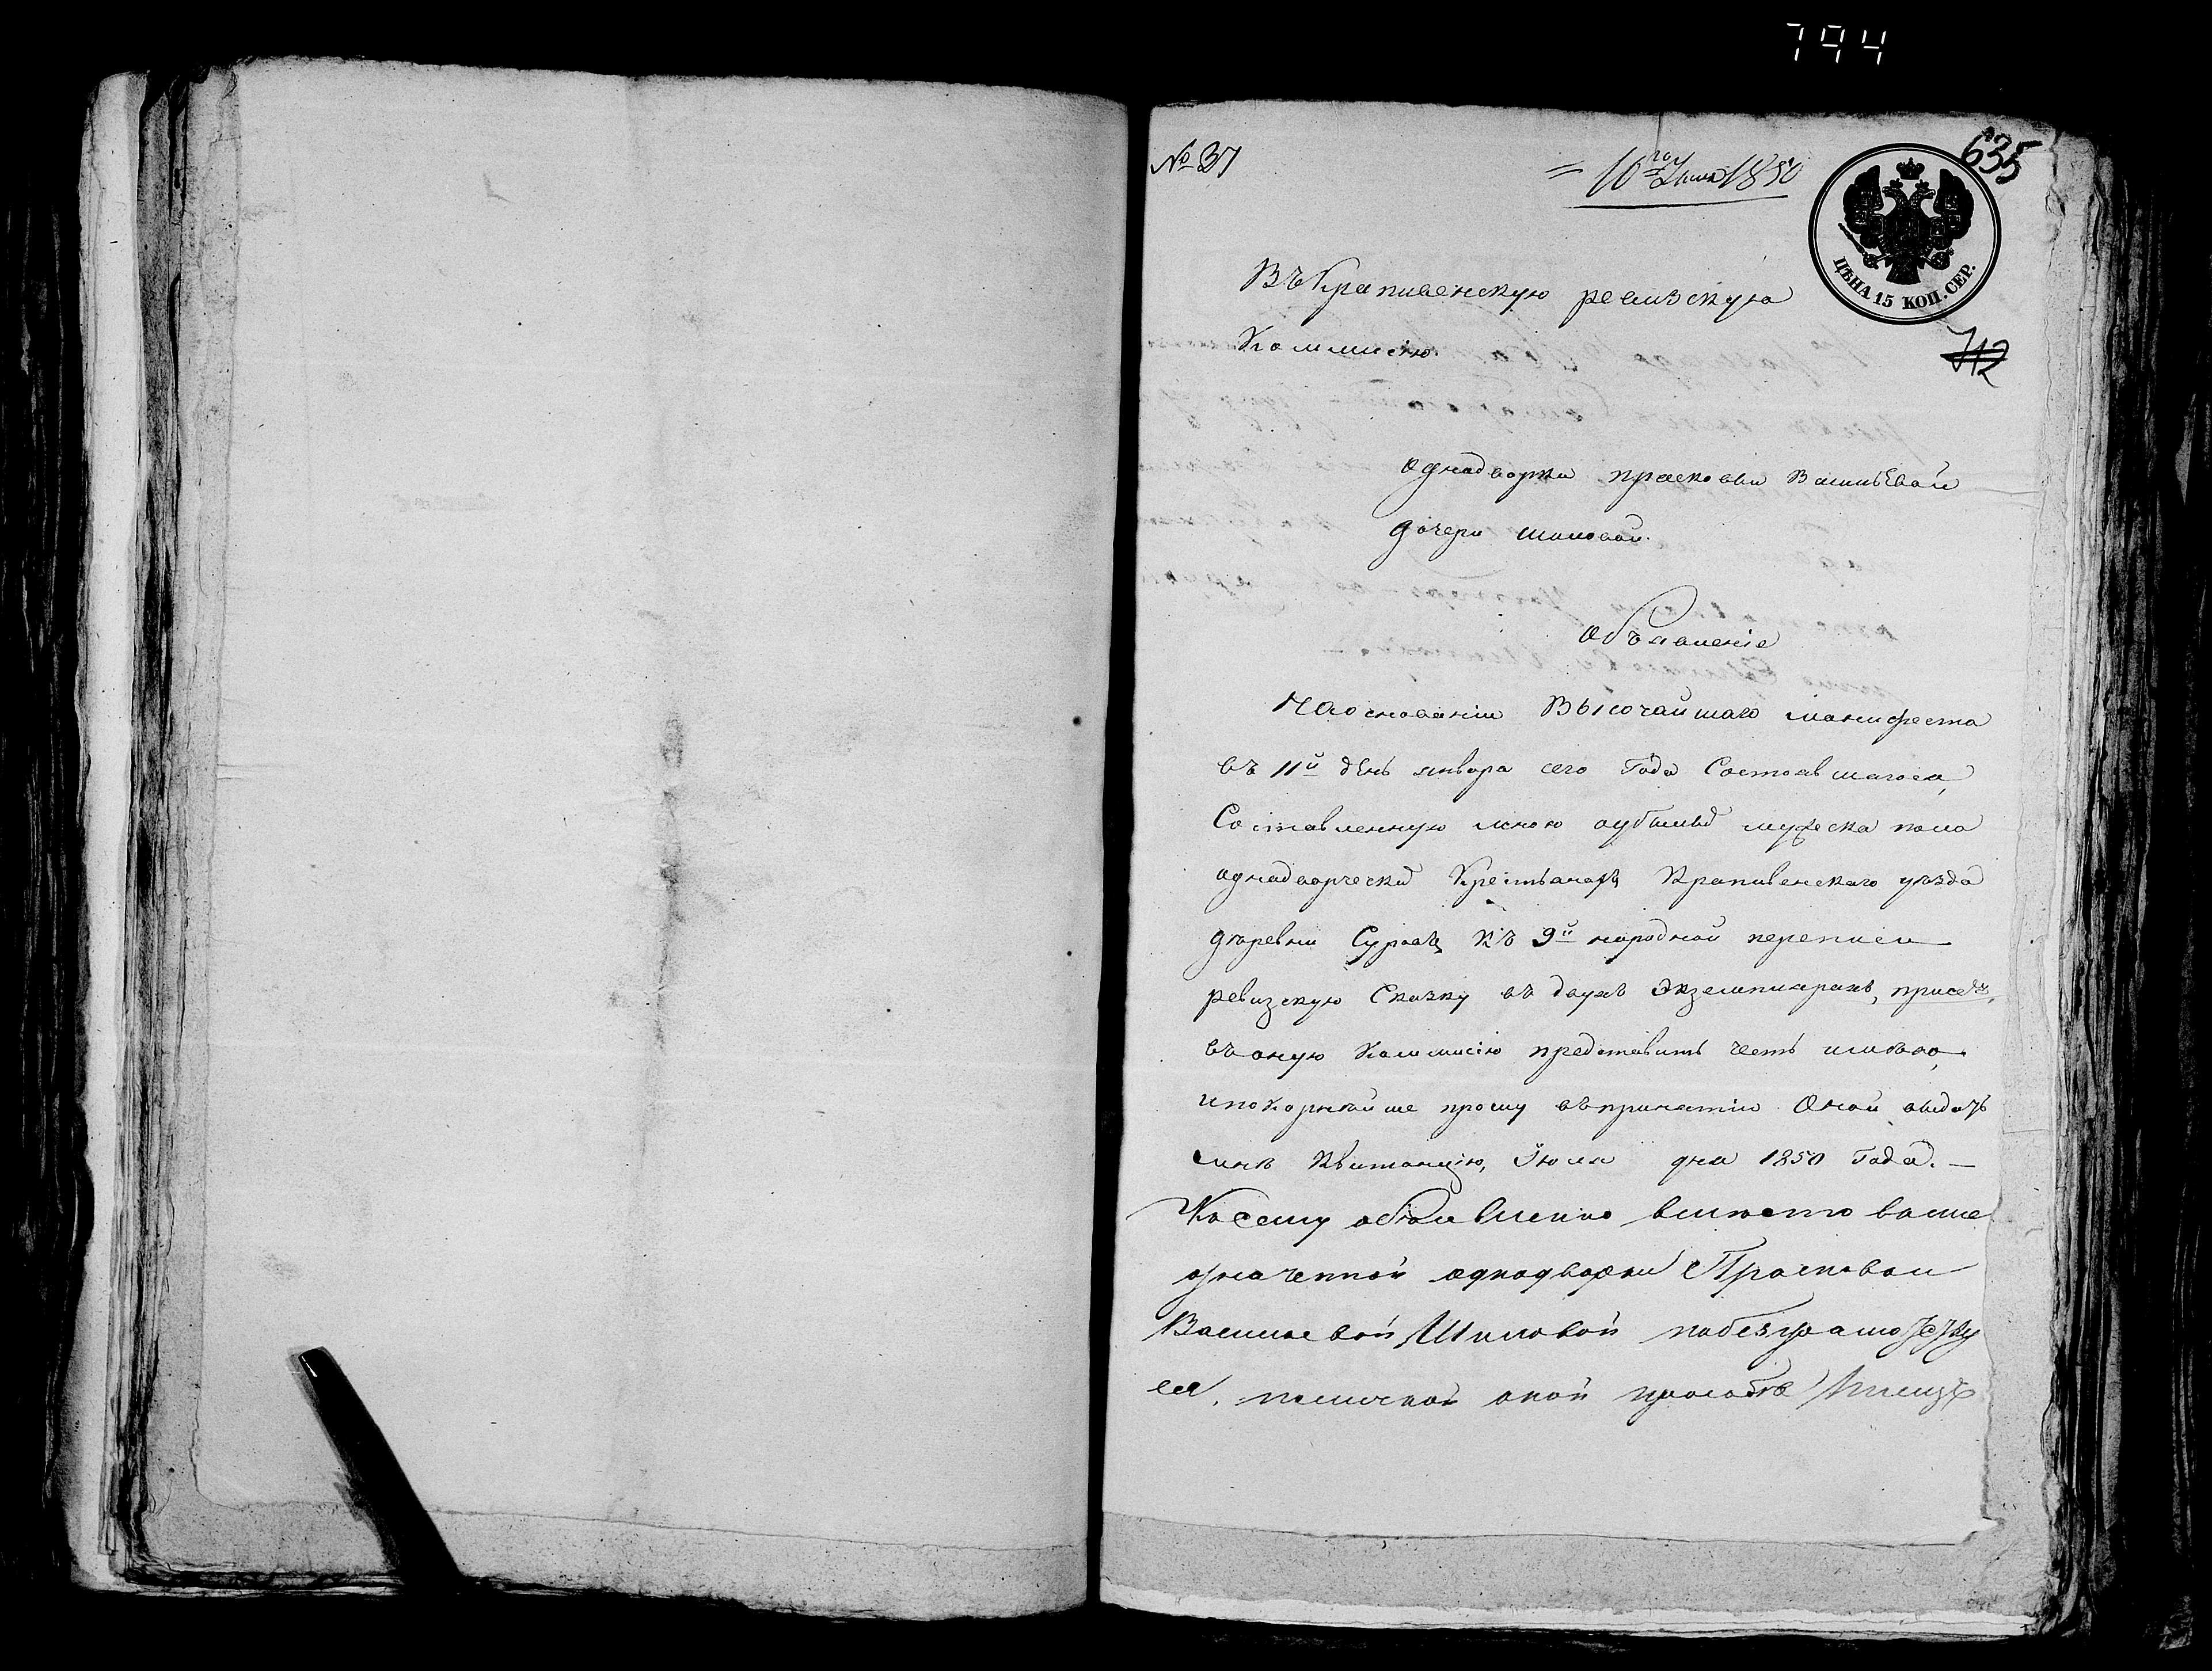 794
№ 37
10го Июля 1850
635
ЦѢНА 15 КОП. СЕР.
712
Въ Крапивенскую ревизскую
Коммисію
однадворки прасковьи ВасильЕвой
дочери шиловой.
объявленіе
На основаніи Высочайшаго манифеста
въ 11й дЕнь января сего Года Состоявшагося,
Составленную мною мужеска пола
однадворческих Крестьянахъ Крапивенскаго уѣзда
деревни къ 9й народной переписи
ревизскую Сказку въ двухъ Экземплярахъ, присемъ
въ оную Коммисію представить честь имѣю,
и покорнѣйше прошу въ принятіи Оной выдать
мнѣ Квитанцію, Іюля дня 1850 Года. —
Къ сему объявленію вместо выше
означенной однодворки Прасковьи
Васильевой Шиловой
ея, по личной оной прозьбе